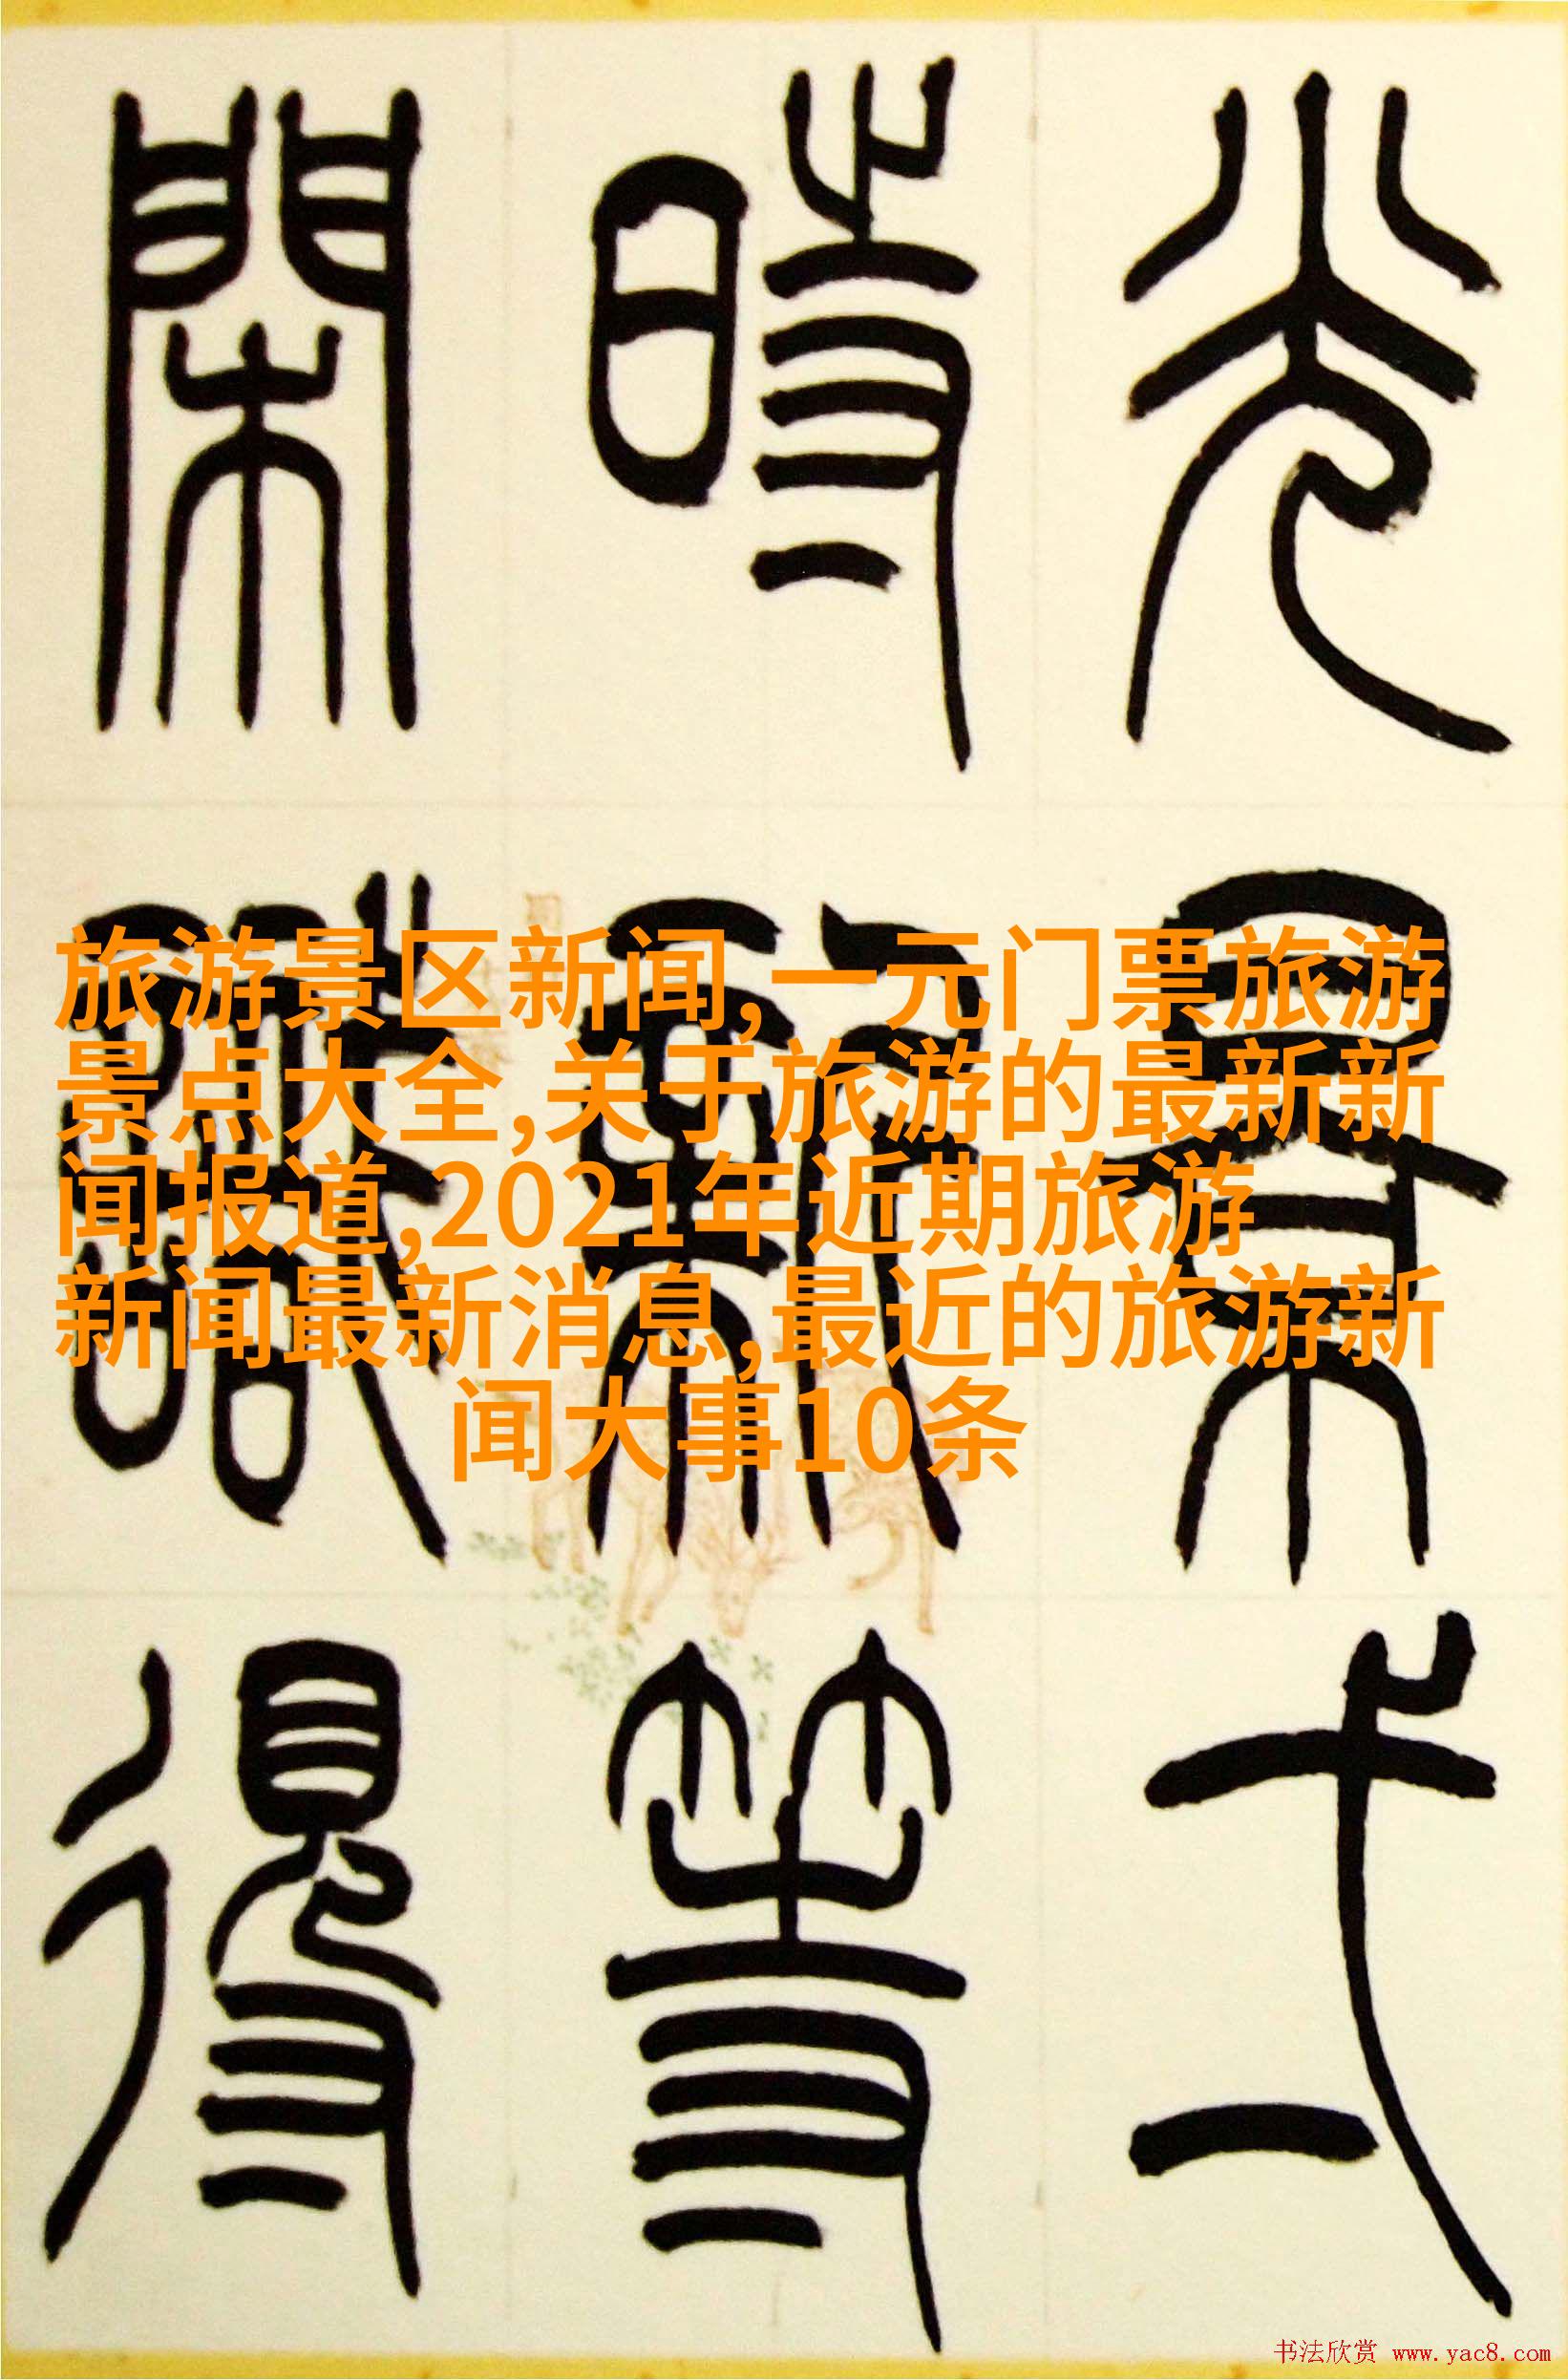 光景弌
時新等
閑識得
旅游景区新闻,一元门票旅游
景点大全,关于旅游的最新新
闻报道,2021年近期旅游
新闻最新消息,最近的旅游新
闻大事10条
书法欣赏 www.yac8.com